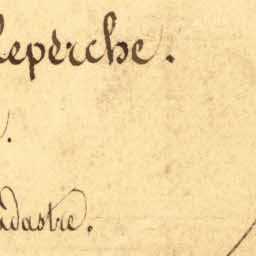 leperche.
.
adastre.